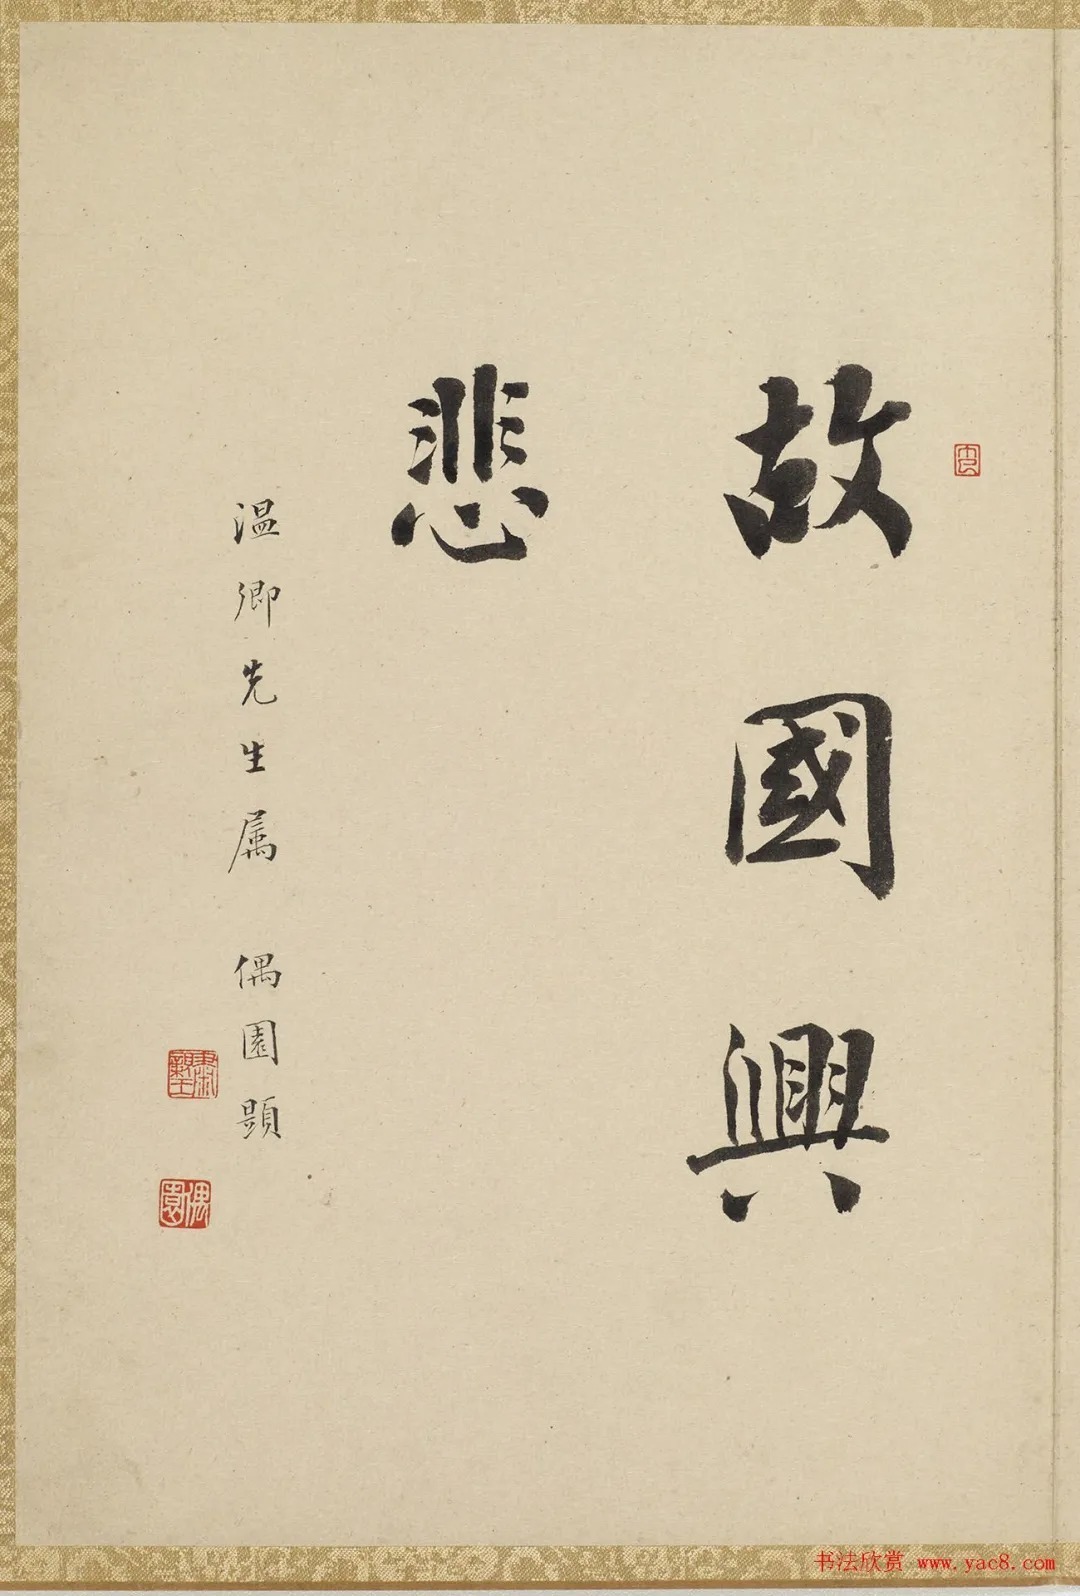 故國興
悲
温卿先生属 偶園題
肅親王
偶園
书法欣赏 www.yac8.com